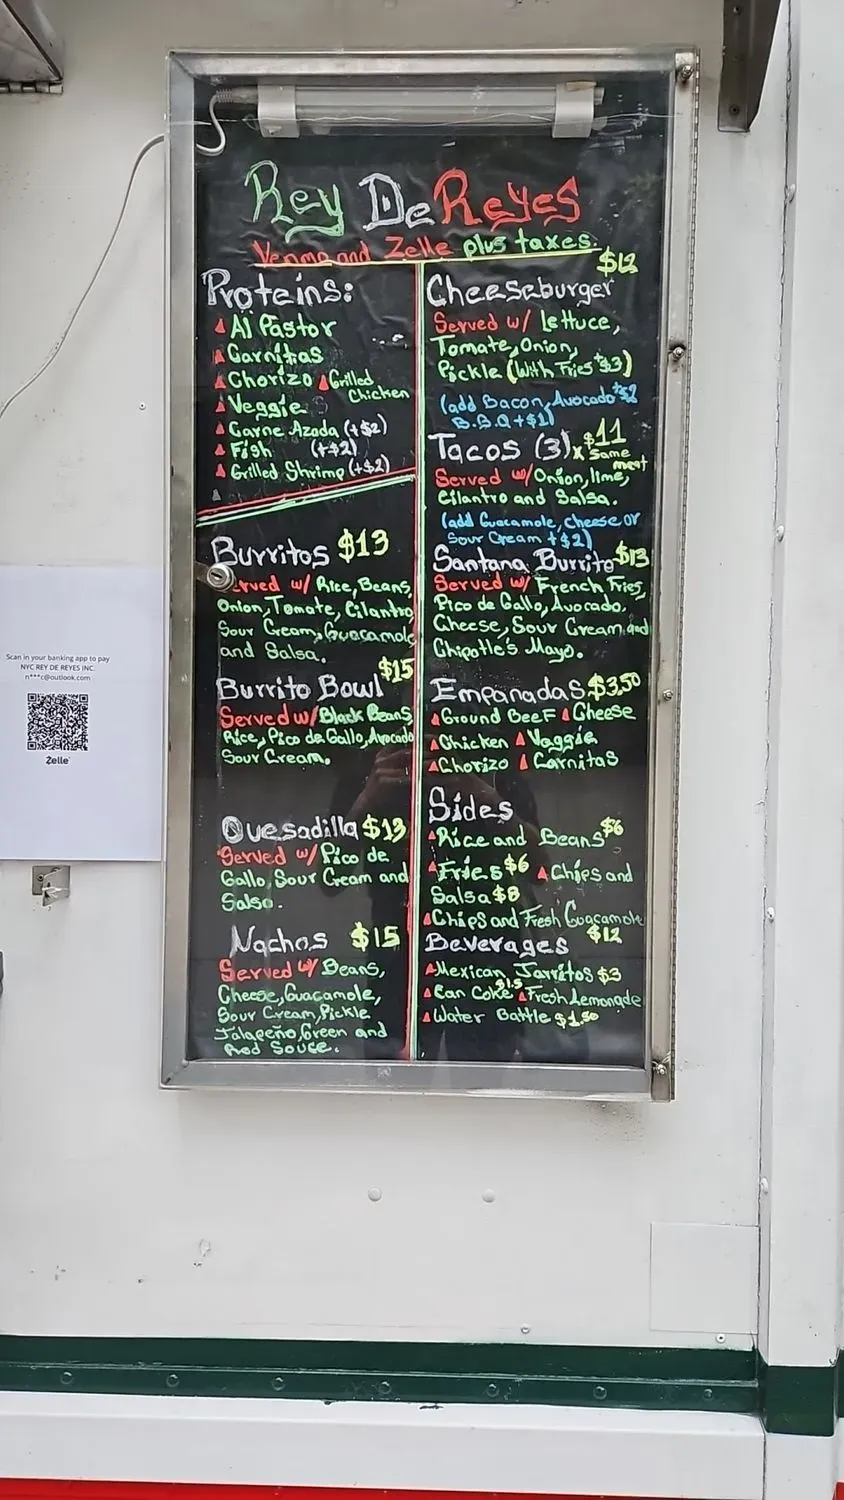 Rey De Reyes
Venmo and Zelle plus taxes.
Proteins:
Al Pastor
Carnitas
Chorizo Grilled
Chicken
Veggie
Carne Azada (+$2)
Fish (+$2)
Grilled Shrimp (+$2)
Burritos $13
Served w/ Rice, Beans,
Onion, Tomate, Cilantro,
Sour Cream, Guacamole
and Salsa.
$15
Burrito Bowl
Served w/ Black Beans,
Rice, Pico de Gallo, Avocado
Sour Cream.
Quesadilla $13
Served w/ Pico de
Gallo, Sour Cream and
Salsa.
Nachos $15
Served w/ Beans,
Cheese, Guacamole,
Sour Cream, Pickle
Jalapeño, Green and
Red Souce.
$12
Cheeseburger
Served w/ Lettuce,
Tomate, Onion,
Pickle (With Fries +$3)
(add Bacon, Avocado +$2
B.B.Q +$1)
Tacos (3) x $11
same
meat
Served w/ Onion, lime,
Cilantro and Salsa.
(add Guacamole, cheese or
Sour Cream +$2)
Santana Burrito $13
Served w/ French Fries,
Pico de Gallo, Avocado,
Cheese, Sour Cream and
Chipotle's Mayo.
Empanadas $3,50
Ground Beef Cheese
Chicken Veggie
Chorizo Carnitas
Sides
Rice and Beans $6
Fries $6 Chips and
Salsa $8
Chips and Fresh Guacamole
$12
Beverages
Mexican Jarritos $3
Can Coke $1.5 Fresh Lemonade
Water Battle $1.50
Scan in your banking app to pay
NYC REY DE REYES INC.
n***c@outlook.com
Zelle